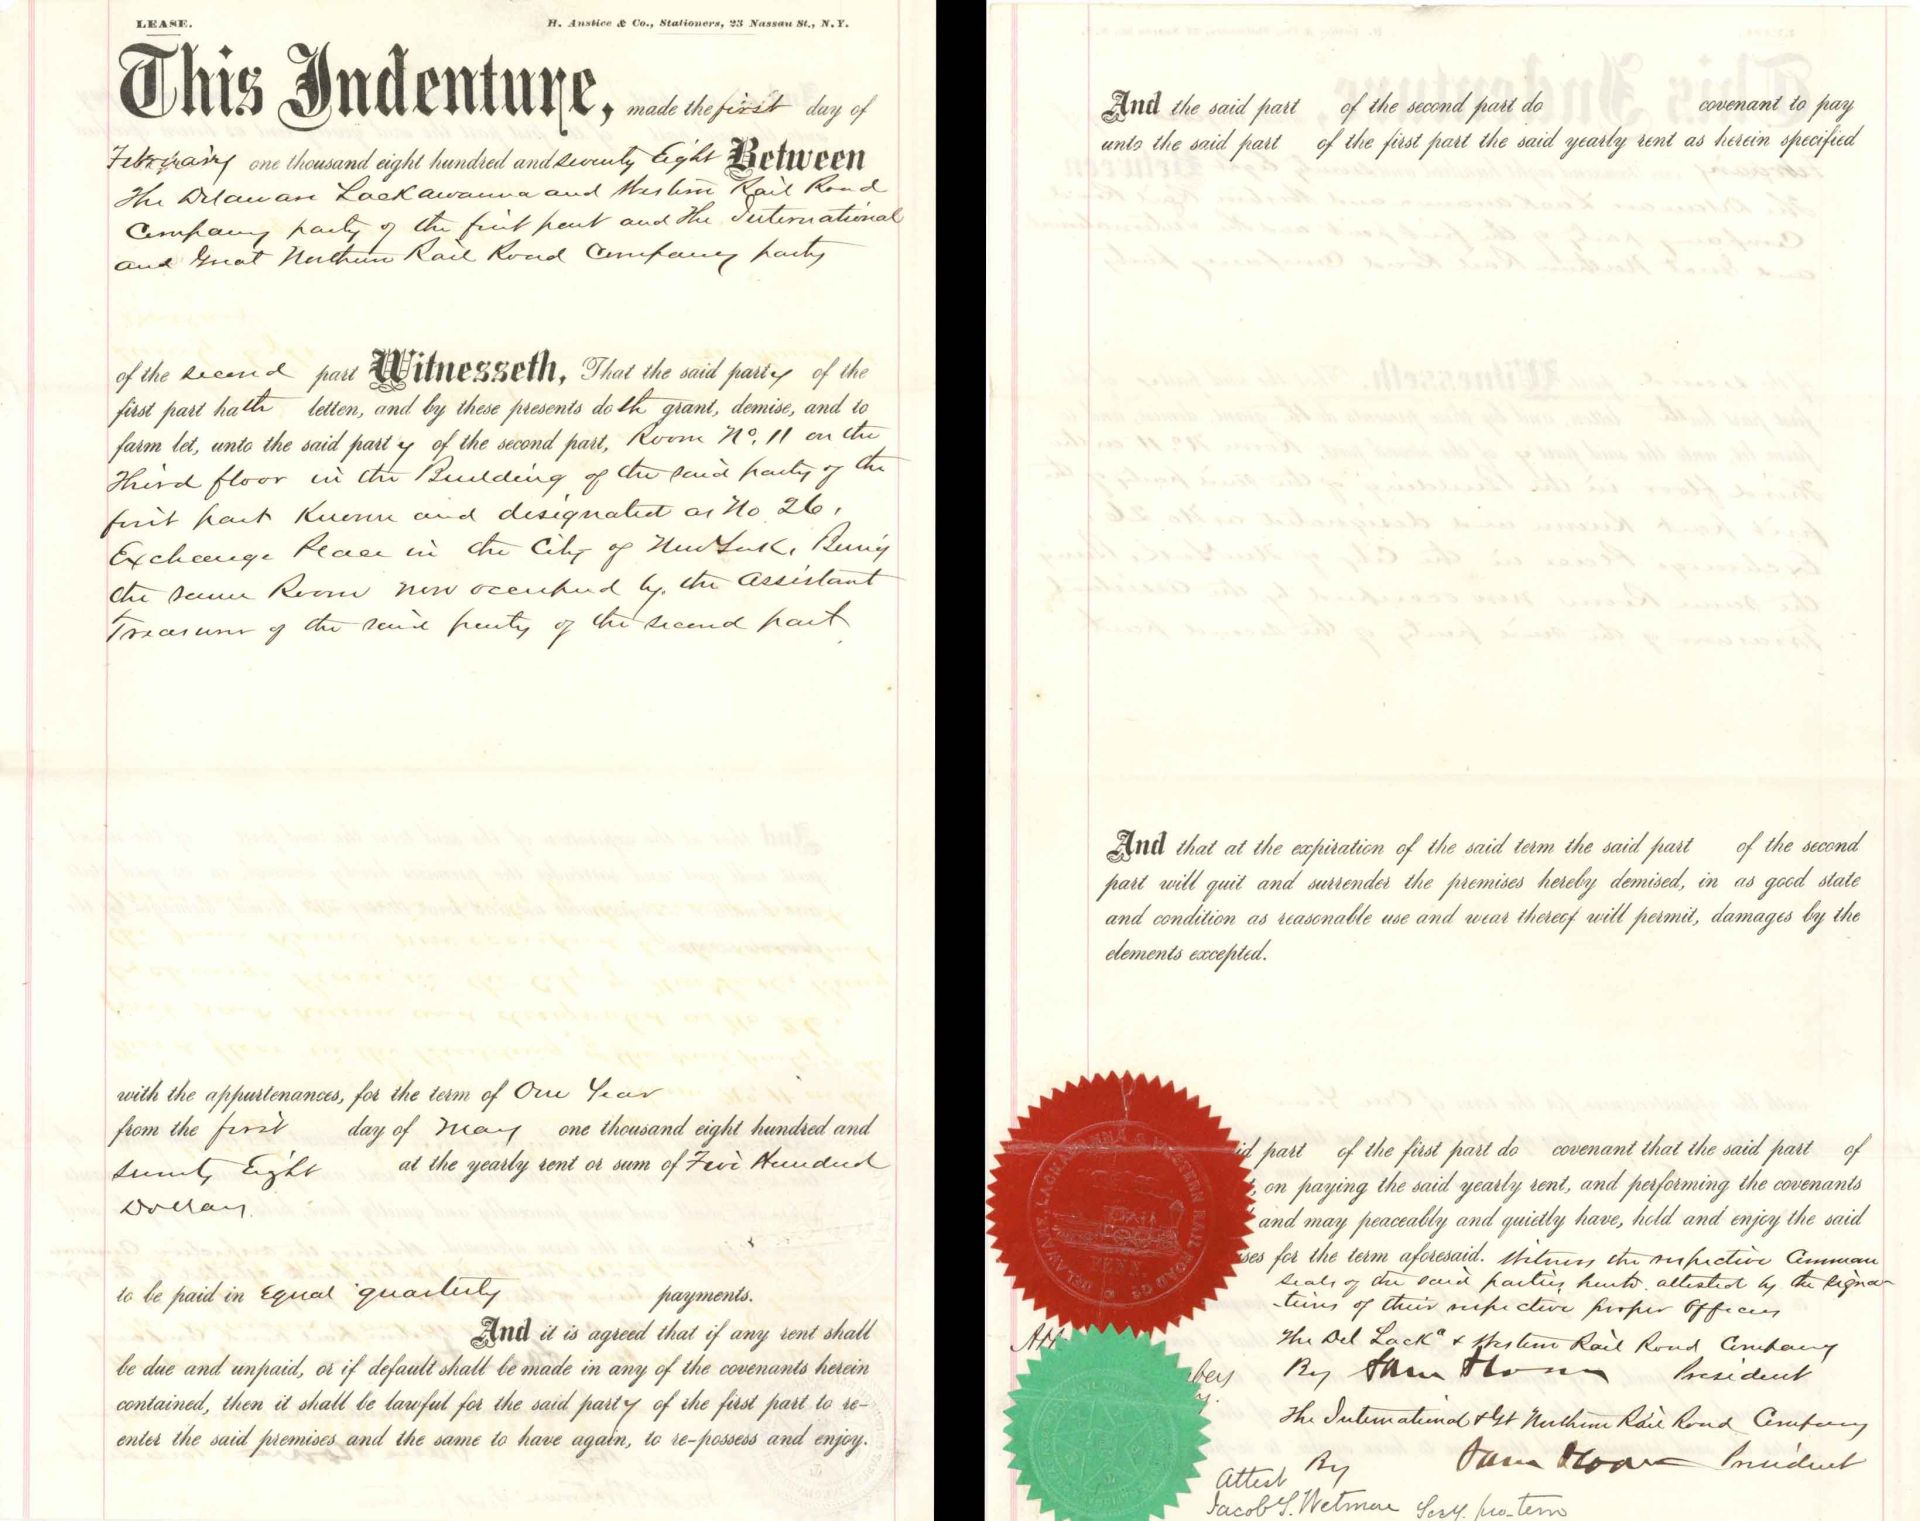 LEASE. H. Anstice & Co., Stationers, 23 Nassau St., N.Y.
This Indenture, made the first day of
February one thousand eight hundred and seventy Eight Between
The Delaware Lackawanna and Western Rail Road
Company party of the first part and The International
and Great Northern Rail Road Company party
of the second part Witnesseth, That the said party of the
first part hath letten, and by these presents doth grant, demise, and to
farm let, unto the said party of the second part, Room No. 11 on the
Third floor in the Building of the said party of the
first part Known and designated as No 26,
Exchange Place in the City of New York, Being
the same Room now occupied by the Assistant
Treasurer of the said party of the second part
with the appurtenances, for the term of One Year
from the first day of May one thousand eight hundred and
seventy Eight at the yearly rent or sum of Five Hundred
Dollars
to be paid in Equal quarterly payments.
And it is agreed that if any rent shall
be due and unpaid, or if default shall be made in any of the covenants herein
contained, then it shall be lawful for the said party of the first part to re-
enter the said premises and the same to have again, to re-possess and enjoy.
And the said part of the second part do covenant to pay
unto the said part of the first part the said yearly rent as herein specified
And that at the expiration of the said term the said part of the second
part will quit and surrender the premises hereby demised, in as good state
and condition as reasonable use and wear thereof will permit, damages by the
elements excepted.
part of the first part do covenant that the said part of
on paying the said yearly rent, and performing the covenants
and may peaceably and quietly have, hold and enjoy the said
for the term aforesaid. Witness the respective Common
Seals of the said parties hereto attested by the signa-
-tures of their respective proper Officers
The Del Lacka & Western Rail Road Company
By Sam Sloan President
The International & Gt Northern Rail Road Company
By Sam Sloan President
Attest
Jacob S. Wetmore Secy. pro-tem
DELAWARE, LACKAWANNA & WESTERN RAIL ROAD CO.